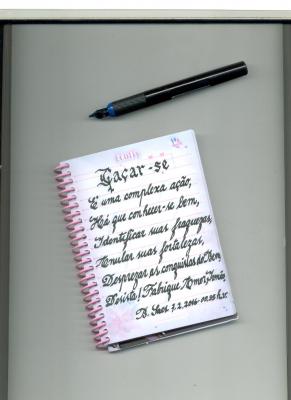 Caçar-se
É uma complexa ação,
Há que conhecer-se bem,
Identificar suas fraquezas,
Anular suas fortalezas,
Desprezar as conquistas do Bem
Desista! Fabrique Amor,
B. Sues. 7.2.2016